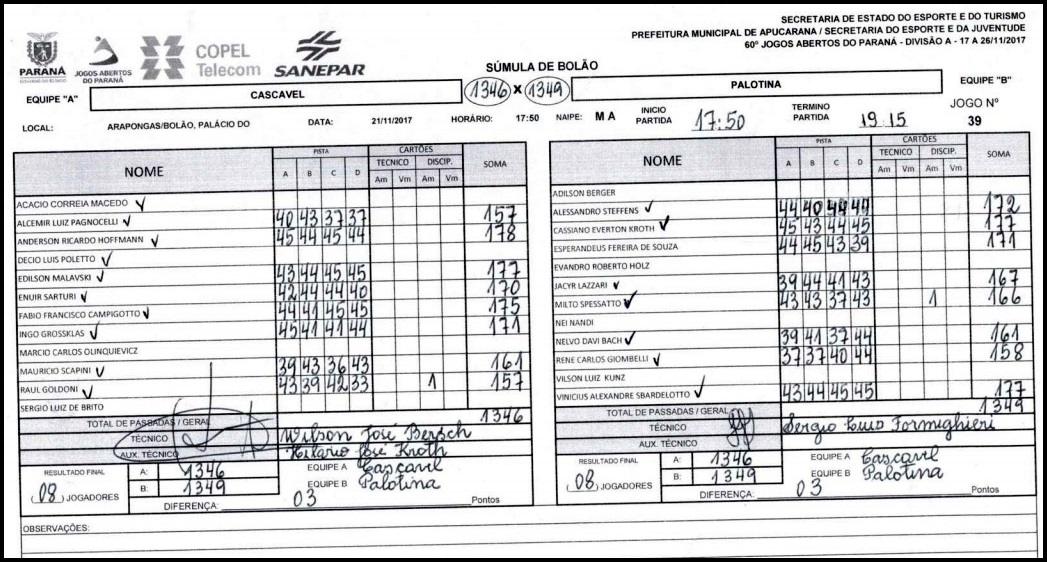 SECRETARIA DE ESTADO DO ESPORTE E DO TURISMO
PREFEITURA MUNICIPAL DE APUCARANA / SECRETARIA DO ESPORTE E DA JUVENTUDE
60º JOGOS ABERTOS DO PARANÁ - DIVISÃO A - 17 A 26/11/2017
PARANÁ
JOGOS ABERTOS DO PARANÁ
COPEL Telecom
SANEPAR
SÚMULA DE BOLÃO
EQUIPE "A" CASCAVEL 1346 x 1349 PALOTINA EQUIPE "B"
LOCAL: ARAPONGAS/BOLÃO, PALÁCIO DO DATA: 21/11/2017 HORÁRIO: 17:50 NAIPE: M A INICIO PARTIDA 17:50 TERMINO PARTIDA 19 15 JOGO Nº 39
NOME PISTA A B C D CARTÕES TECNICO Am Vm DISCIP. Am Vm SOMA
ACACIO CORREIA MACEDO ✓
ALCEMIR LUIZ PAGNOCELLI ✓ 40 43 37 37 157
ANDERSON RICARDO HOFFMANN ✓ 45 44 45 44 178
DECIO LUIS POLETTO ✓
EDILSON MALAVSKI ✓ 43 44 45 45 177
ENUIR SARTURI ✓ 42 44 44 40 170
FABIO FRANCISCO CAMPIGOTTO ✓ 44 41 45 45 175
INGO GROSSKLAS ✓ 45 41 41 44 171
MARCIO CARLOS OLINQUIEVICZ
MAURICIO SCAPINI ✓ 39 43 36 43 161
RAUL GOLDONI ✓ 43 39 42 33 1 157
SERGIO LUIZ DE BRITO
TOTAL DE PASSADAS / GERAL 1346
TÉCNICO Wilson José Bersch
AUX. TÉCNICO Hilario José Kroth
RESULTADO FINAL A: 1346 EQUIPE A Cascavel
(08) JOGADORES B: 1349 EQUIPE B Palotina
DIFERENÇA: 03 Pontos
NOME PISTA A B C D CARTÕES TECNICO Am Vm DISCIP. Am Vm SOMA
ADILSON BERGER
ALESSANDRO STEFFENS ✓ 44 40 44 44 172
CASSIANO EVERTON KROTH ✓ 45 43 44 45 177
ESPERANDEUS FEREIRA DE SOUZA 44 45 43 39 171
EVANDRO ROBERTO HOLZ
JACYR LAZZARI ✓ 39 44 41 43 167
MILTO SPESSATTO ✓ 43 43 37 43 1 166
NEI NANDI
NELVO DAVI BACH ✓ 39 41 37 44 161
RENE CARLOS GIOMBELLI ✓ 37 37 40 44 158
VILSON LUIZ KUNZ
VINICIUS ALEXANDRE SBARDELOTTO ✓ 43 44 45 45 177
TOTAL DE PASSADAS / GERAL 1349
TÉCNICO Sergio Luis Formighieri
AUX. TÉCNICO
RESULTADO FINAL A: 1346 EQUIPE A Cascavel
(08) JOGADORES B: 1349 EQUIPE B Palotina
DIFERENÇA: 03 Pontos
OBSERVAÇÕES: